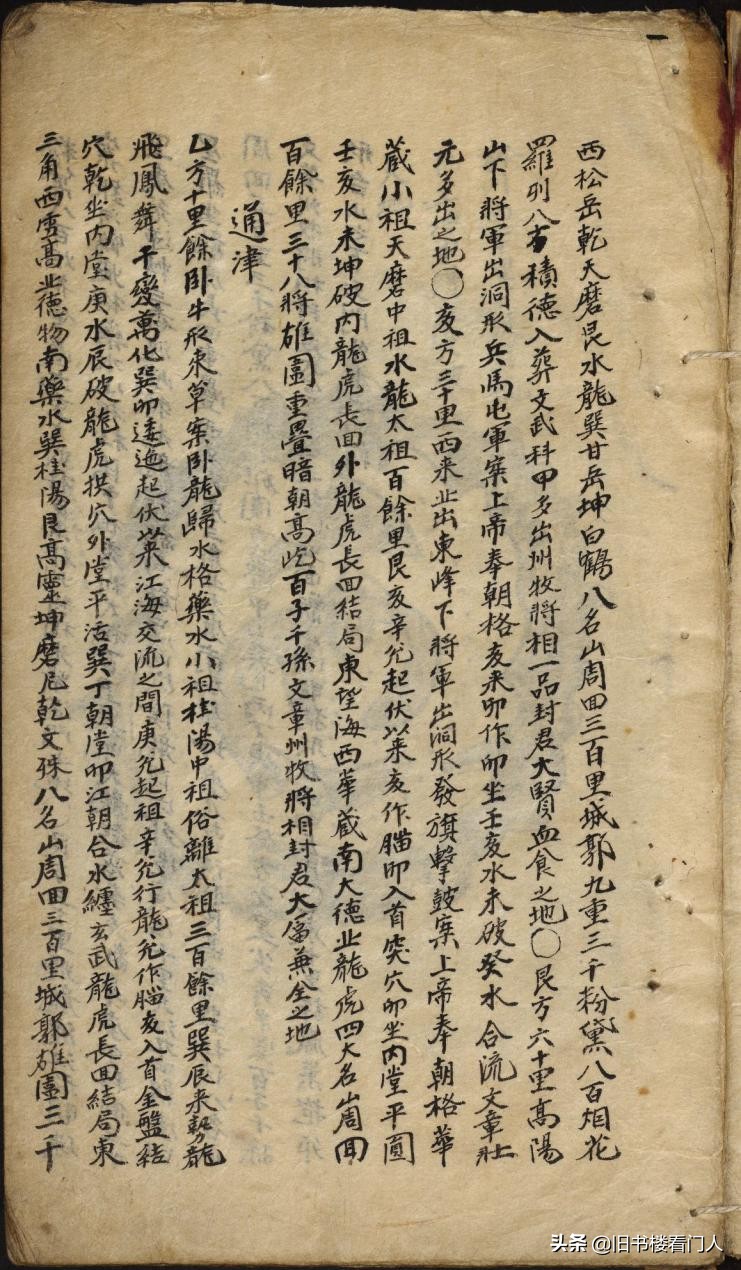 西松岳乾天磨艮水龍巽甘岳坤白鶴八名山周回三百里城郭九重三千粉黛八百烟花
羅列八方積德入葬文武科甲多出州牧將相一品封君大賢血食之地〇艮方六十里高陽
山下將軍出洞形兵馬屯軍案上帝奉朝格亥來卯作卯坐壬亥水未破癸水合流文章壯
元多出之地〇亥方三十里西來北出東峰下將軍出洞形發旗擊鼓案上帝奉朝格華
藏小祖天磨中祖水龍太祖百餘里艮亥辛兌起伏以來亥作腦卯入首突穴卯坐內堂平圓
壬亥水未坤破內龍虎長回外龍虎長回結局東望海西華藏南大德北龍虎四大名山周回
百餘里三十八將雄圍重疊暗朝高屹百子千孫文章州牧將相封君大富兼全之地
通津
乙方十里餘卧牛形束草案卧龍歸水格藥水小祖桂陽中祖俗離太祖三百餘里巽辰來勢龍
飛鳳舞千變萬化巽卯逶迤起伏以來江海交流之間庚兌起祖辛兌行龍兌作腦亥入首金盤結
穴乾坐內堂庚水辰破龍虎拱穴外堂平活巽丁朝堂卯江朝合水纏玄武龍虎長回結局東
三角西雪高北德物南藥水巽桂陽艮高靈坤磨尼乾文殊八名山周回三百里城郭雄圍三千
头条 @旧书楼看门人